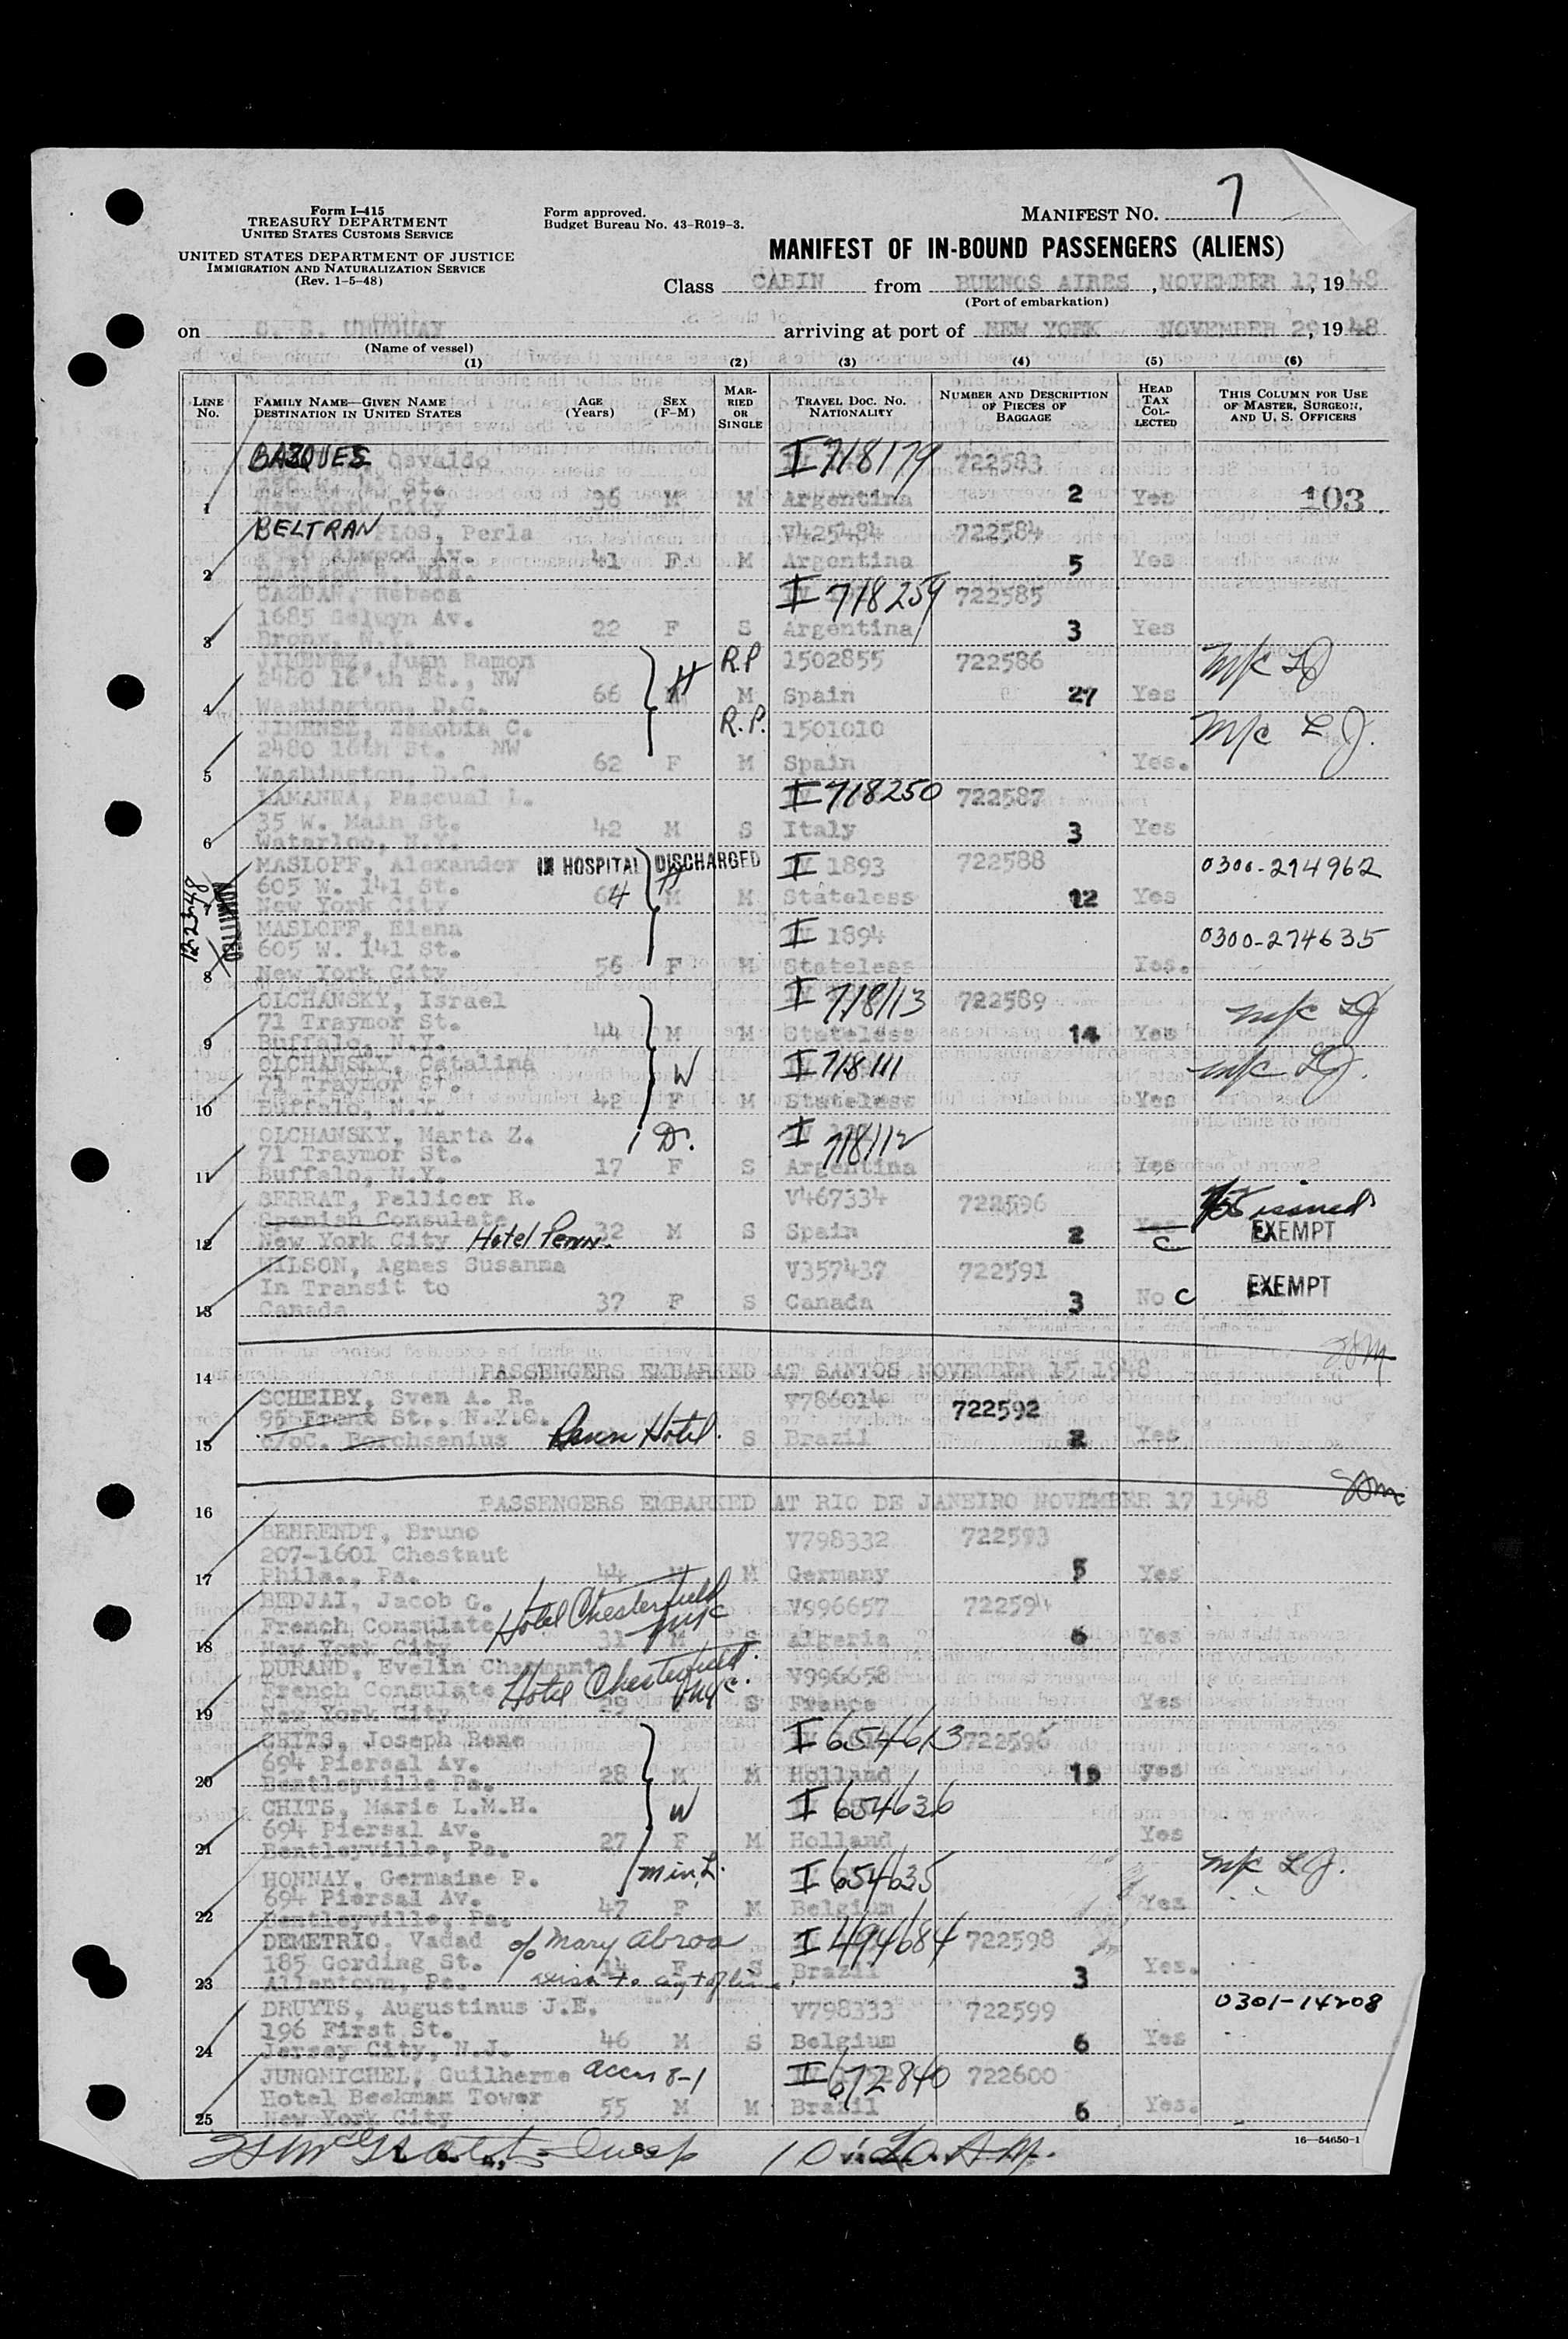 Form I-415
TREASURY DEPARTMENT
UNITED STATES CUSTOMS SERVICE
UNITED STATES DEPARTMENT OF JUSTICE
IMMIGRATION AND NATURALIZATION SERVICE
(Rev. 1-5-48)
Form approved.
Budget Bureau No. 43-R019-3.
MANIFEST NO. 7
MANIFEST OF IN-BOUND PASSENGERS (ALIENS)
Class CABIN from BUENOS AIRES, NOVEMBER 12, 1948
(Port of embarkation)
on S. S. URUGUAY arriving at port of NEW YORK NOVEMBER 29, 1948
(Name of vessel)
(1) (2) (3) (4) (5) (6)
LINE No.
FAMILY NAME—GIVEN NAME
DESTINATION IN UNITED STATES
AGE (Years)
SEX (F-M)
MARRIED OR SINGLE
TRAVEL DOC. NO.
NATIONALITY
NUMBER AND DESCRIPTION OF PIECES OF BAGGAGE
HEAD TAX COLLECTED
THIS COLUMN FOR USE OF MASTER, SURGEON, AND U. S. OFFICERS
BAZQUES Osvaldo I 718179 722583
W. 141 St.
1 New York City 36 M M Argentina 2 Yes 103
BELTRAN, Perla V425484 722584
Atwood Av. 41 F M Argentina 5 Yes
2 Wis.
CAZDAN, Rebeca I 718259 722585
1685 Selwyn Av. 22 F S Argentina 3 Yes
3 Bronx, N.Y.
JIMENEZ, Juan Ramon R.P 1502855 722586 M/c LJ
2480 16 th St., NW 66 H M Spain 27 Yes
4 Washington, D.C.
JIMENEZ, Zenobia C. R.P. 1501010 M/c L J.
2480 16th St. NW 62 F M Spain Yes.
5 Washington, D.C.
LAMANNA, Pascual L. I 718250 722587
35 W. Main St. 42 M S Italy 3 Yes
6 Waterloo, N.Y.
MASLOFF, Alexander IN HOSPITAL DISCHARGED I 1893 722588 0300-274962
605 W. 141 St. 64 M M Stateless 12 Yes
7 New York City
12-23-48 ADMITTED
MASLOFF, Elena I 1894 0300-274635
605 W. 141 St. 56 F M Stateless Yes.
8 New York City
OLCHANSKY, Israel I 718113 722589 m/c LJ
71 Traymor St. 44 M M Stateless 14 Yes
9 Buffalo, N.Y.
OLCHANSKY, Catalina W I 718111 m/c LJ.
71 Traymor St. 42 F M Stateless Yes
10 Buffalo, N.Y.
OLCHANSKY, Marta Z. D. I 718112
71 Traymor St. 17 F S Argentina Yes
11 Buffalo, N.Y.
SERRAT, Pellicer R. V467334 issued
Spanish Consulate 32 M S Spain 2 Yes C EXEMPT
12 New York City Hotel Penn.
WILSON, Agnes Susanna V357437 722591
In Transit to 37 F S Canada 3 No C EXEMPT
13 Canada
14 PASSENGERS EMBARKED AT SANTOS NOVEMBER 15 1948
SCHEIBY, Sven A. R. V786014 722592
95 Front St., N.Y.C.
15 c/oC. Borchsenius Penn Hotel. S Brazil Yes
16 PASSENGERS EMBARKED AT RIO DE JANEIRO NOVEMBER 17 1948
BEHRENDT, Bruno V798332 722593
207-1601 Chestnut
17 Phila., Pa. 44 M M Germany 5 Yes
BEDJAI, Jacob G. Hotel Chesterfield NYC V996657 722594
French Consulate 31 M S Algeria 6 Yes
18 New York City
DURAND, Evelin Hotel Chesterfield. NYC. V996658
French Consulate 29 S France Yes
19 New York City
CHITS, Joseph Rene I 654613 722596
694 Piersal Av. 28 M M Holland Yes
20 Bentleyville Pa.
CHITS, Marie L.M.H. W I 654636
694 Piersal Av. 27 F M Holland Yes
21 Bentleyville, Pa.
HONNAY, Germaine P. I 654635 M/c L J.
694 Piersal Av. 47 F M Belgium Yes
22 Bentleyville, Pa.
DEMETRIO, Vadad c/o Mary Abroa I 494684 722598
185 Gording St. 14 F S Brazil 3 Yes.
23 Allentown, Pa.
DRUYTS, Augustinus J.E. V798333 722599 0301-14208
196 First St. 46 M S Belgium 6 Yes
24 Jersey City, N.J.
JUNGMICHEL, Guilherme I 672840 722600
Hotel Beekman Tower 55 M M Brazil 6 Yes.
25 New York City
10:20 A.M.
16—54650-1